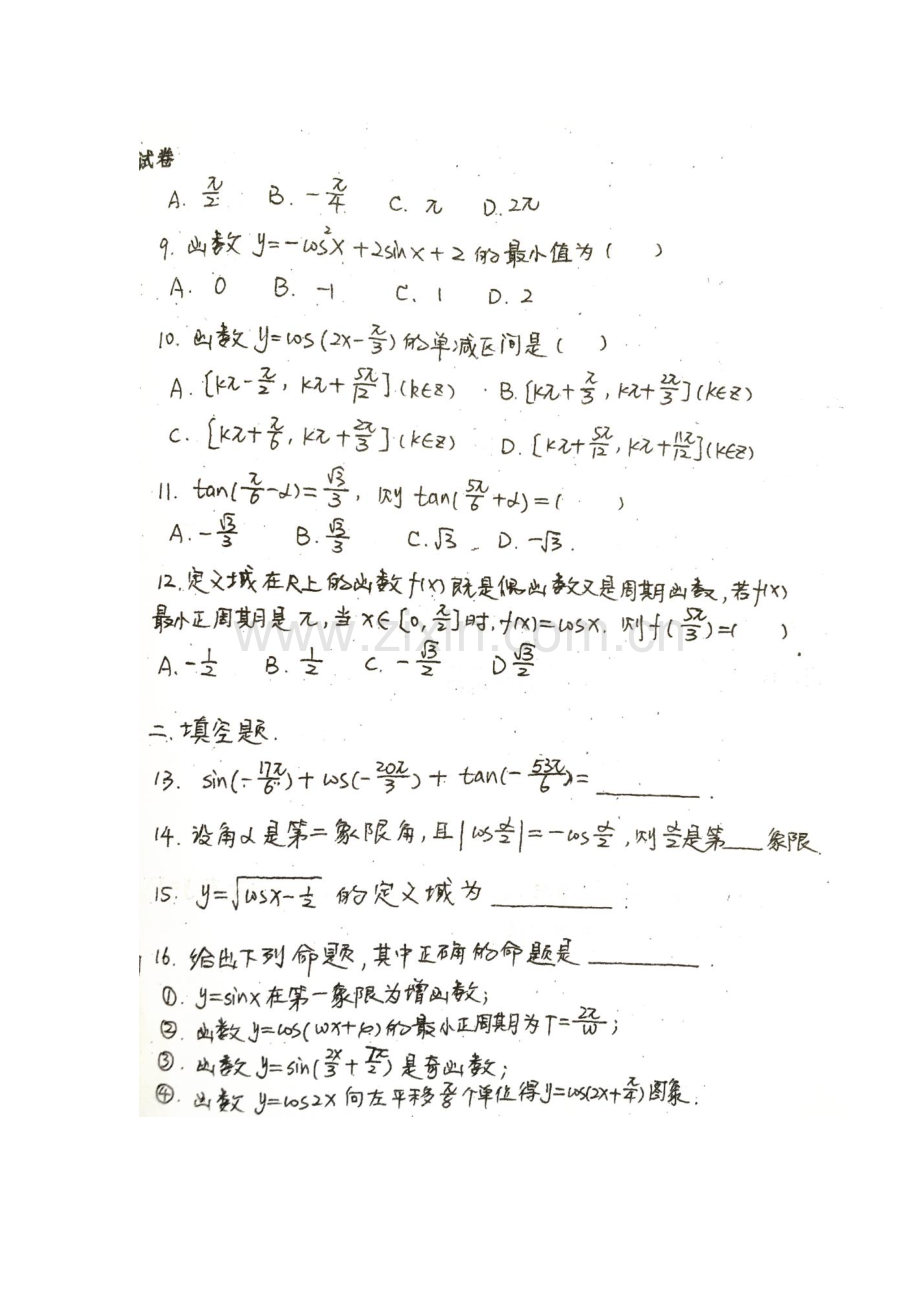 试卷
A. π/2 B. -π/4 C. π D. 2π
9. 函数 y=-cos²x+2sinx+2 的最小值为( )
A. 0 B. -1 C. 1 D. 2
10. 函数 y=cos(2x-π/3) 的单减区间是( )
A. [kπ-π/2, kπ+5π/12](k∈z) B. [kπ+π/3, kπ+2π/3](k∈z)
C. [kπ+π/6, kπ+2π/3](k∈z) D. [kπ+5π/12, kπ+11π/12](k∈z)
11. tan(π/6-α)=√3/3, 则 tan(5π/6+α)=( )
A. -√3/3 B. √3/3 C. √3 D. -√3.
12. 定义域在R上的函数f(x)既是偶函数又是周期函数,若f(x)
最小正周期是π,当x∈[0,π/2]时,f(x)=cosx. 则f(5π/3)=( )
www.zixin.com.cn
A. -1/2 B. 1/2 C. -√3/2 D √3/2
二. 填空题.
13. sin(-17π/6)+cos(-20π/3)+tan(-53π/6)=________.
14. 设角α是第二象限角,且|cosα/2|=-cosα/2,则α/2是第___象限.
15. y=√(cosx-1/2) 的定义域为________.
16. 给出下列命题,其中正确的命题是________.
①. y=sinx在第一象限为增函数;
②. 函数y=cos(ωx+φ)的最小正周期为T=2π/ω;
③. 函数y=sin(2x/3+7π/2)是奇函数;
④. 函数 y=cos2x向左平移π/8个单位得y=cos(2x+π/4)图象.